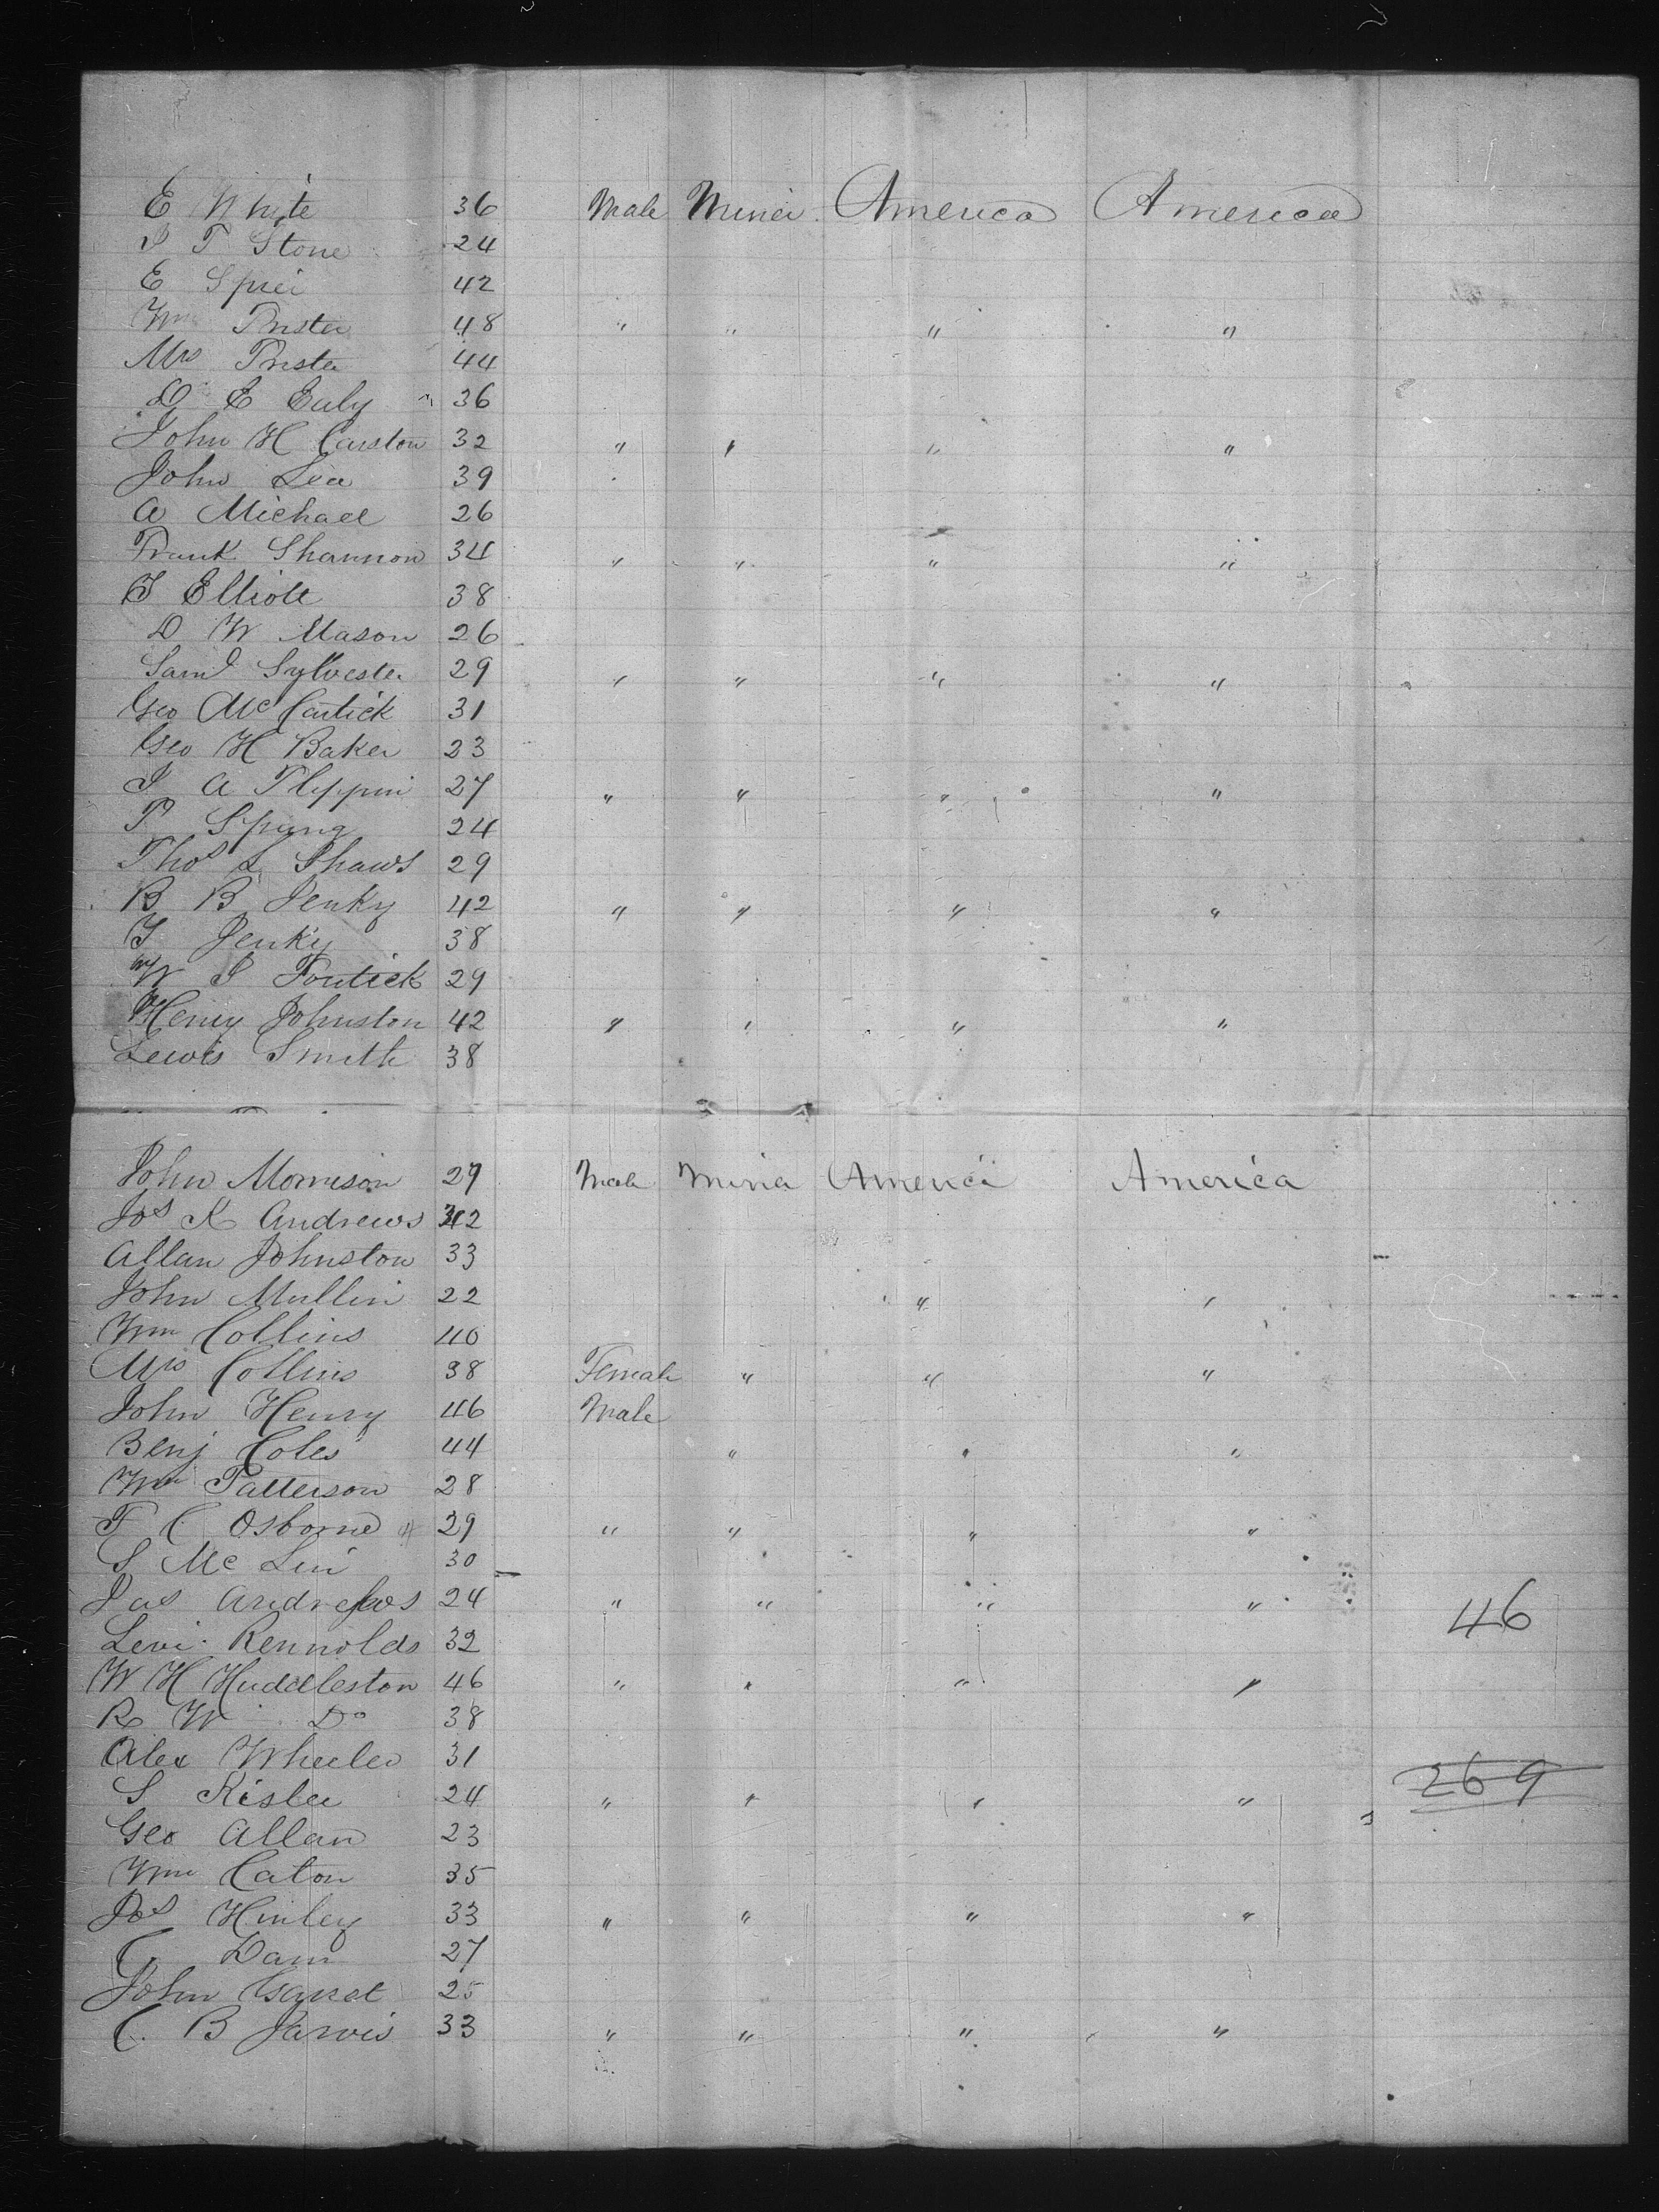 E White 36 Male Miner America America
J T Stone 24
E Spier 42
Wm Prister 48 " " " "
Mrs Prister 44
D E Euly 36
John H Carston 32 " " " "
John Lea 39
A Michael 26
Frank Shannon 34 " " " "
J Elliott 38
D W Mason 26
Saml Sylvester 29 " " " "
Geo McCartick 31
Geo H Baker 23
J A Flippin 27 " " " "
P Spring 24
Thos L Shaws 29
B B Jenky 42 " " " "
J Jenky 38
W J Foutick 29
Henry Johnston 42 " " " "
Lewis Smith 38
John Morrison 27 Male Miner America America
Jos K Andrews 32
Allan Johnston 33
John Mullin 22 " "
Wm Collins 40
Mrs Collins 38 Female " " "
John Henry 46 Male
Benj Coles 44 " " "
Wm Patterson 28
F C Osborne 29 " " " "
S McLin 30
Jas Andrews 24 " " " " 46
Levi Rennolds 32
W H Huddleston 46 " " " "
R W Do 38
Alex Wheeler 31 269
S Kisler 24 " " " "
Geo Allan 23
Wm Caton 35
Jos Hinley 33 " " " "
C Dam 27
John Garret 25
C. B Jarvis 33 " " " "